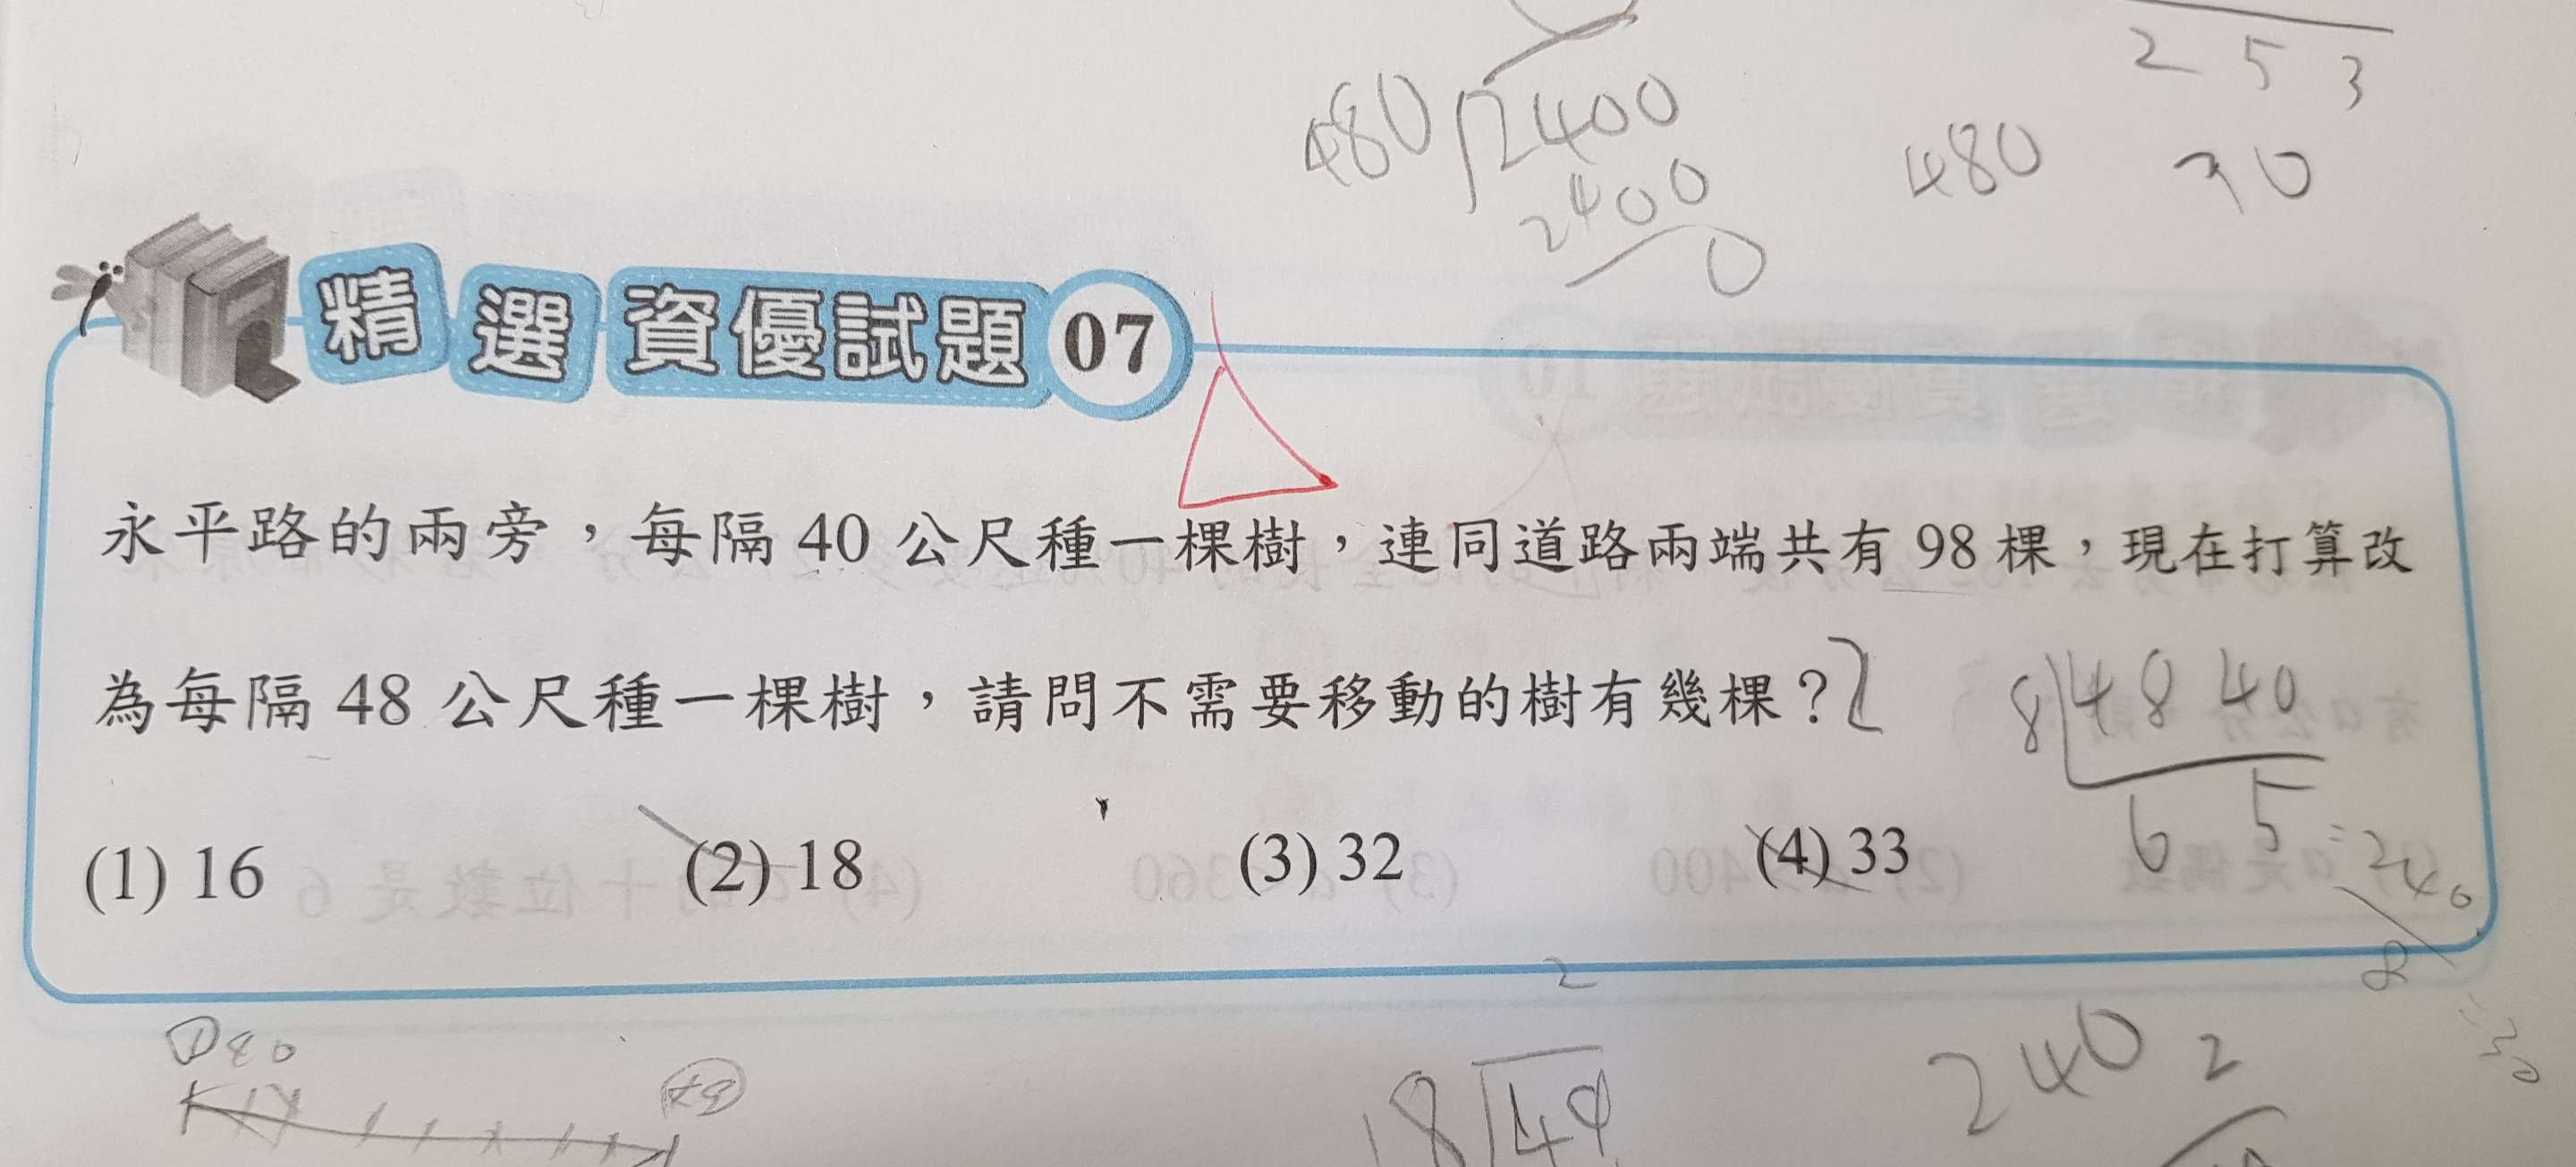 253
480)2400
2400
0
480
精選資優試題07
永平路的兩旁，每隔40公尺種一棵樹，連同道路兩端共有98棵，現在打算改
為每隔48公尺種一棵樹，請問不需要移動的樹有幾棵？
8 48 40
6 5
=240
(1) 16 (2) 18 (3) 32 (4) 33
2
8
240 2
18 49